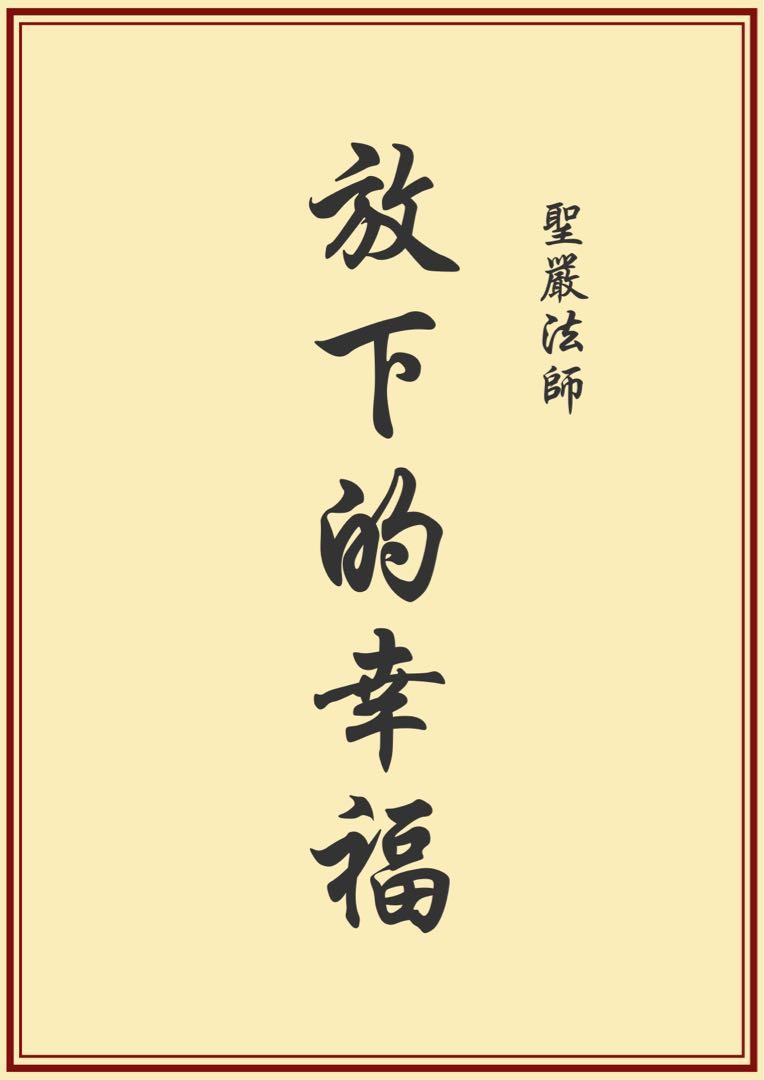 聖嚴法師
放下的幸福